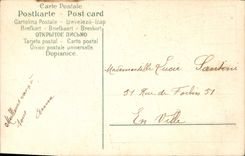 Carte Postale
Postkarte - Post card
Cartolina Postale - Levelező-Lap
Brefkort - Briefkaart - Brevkort
ОТКРЫТОЕ ПИСЬМО
Tarjeta postal - Carta postal
Union postale universelle
Dopisnice
Mademoiselle Lucie Santini
51 Rue de Forbin 51
En Ville